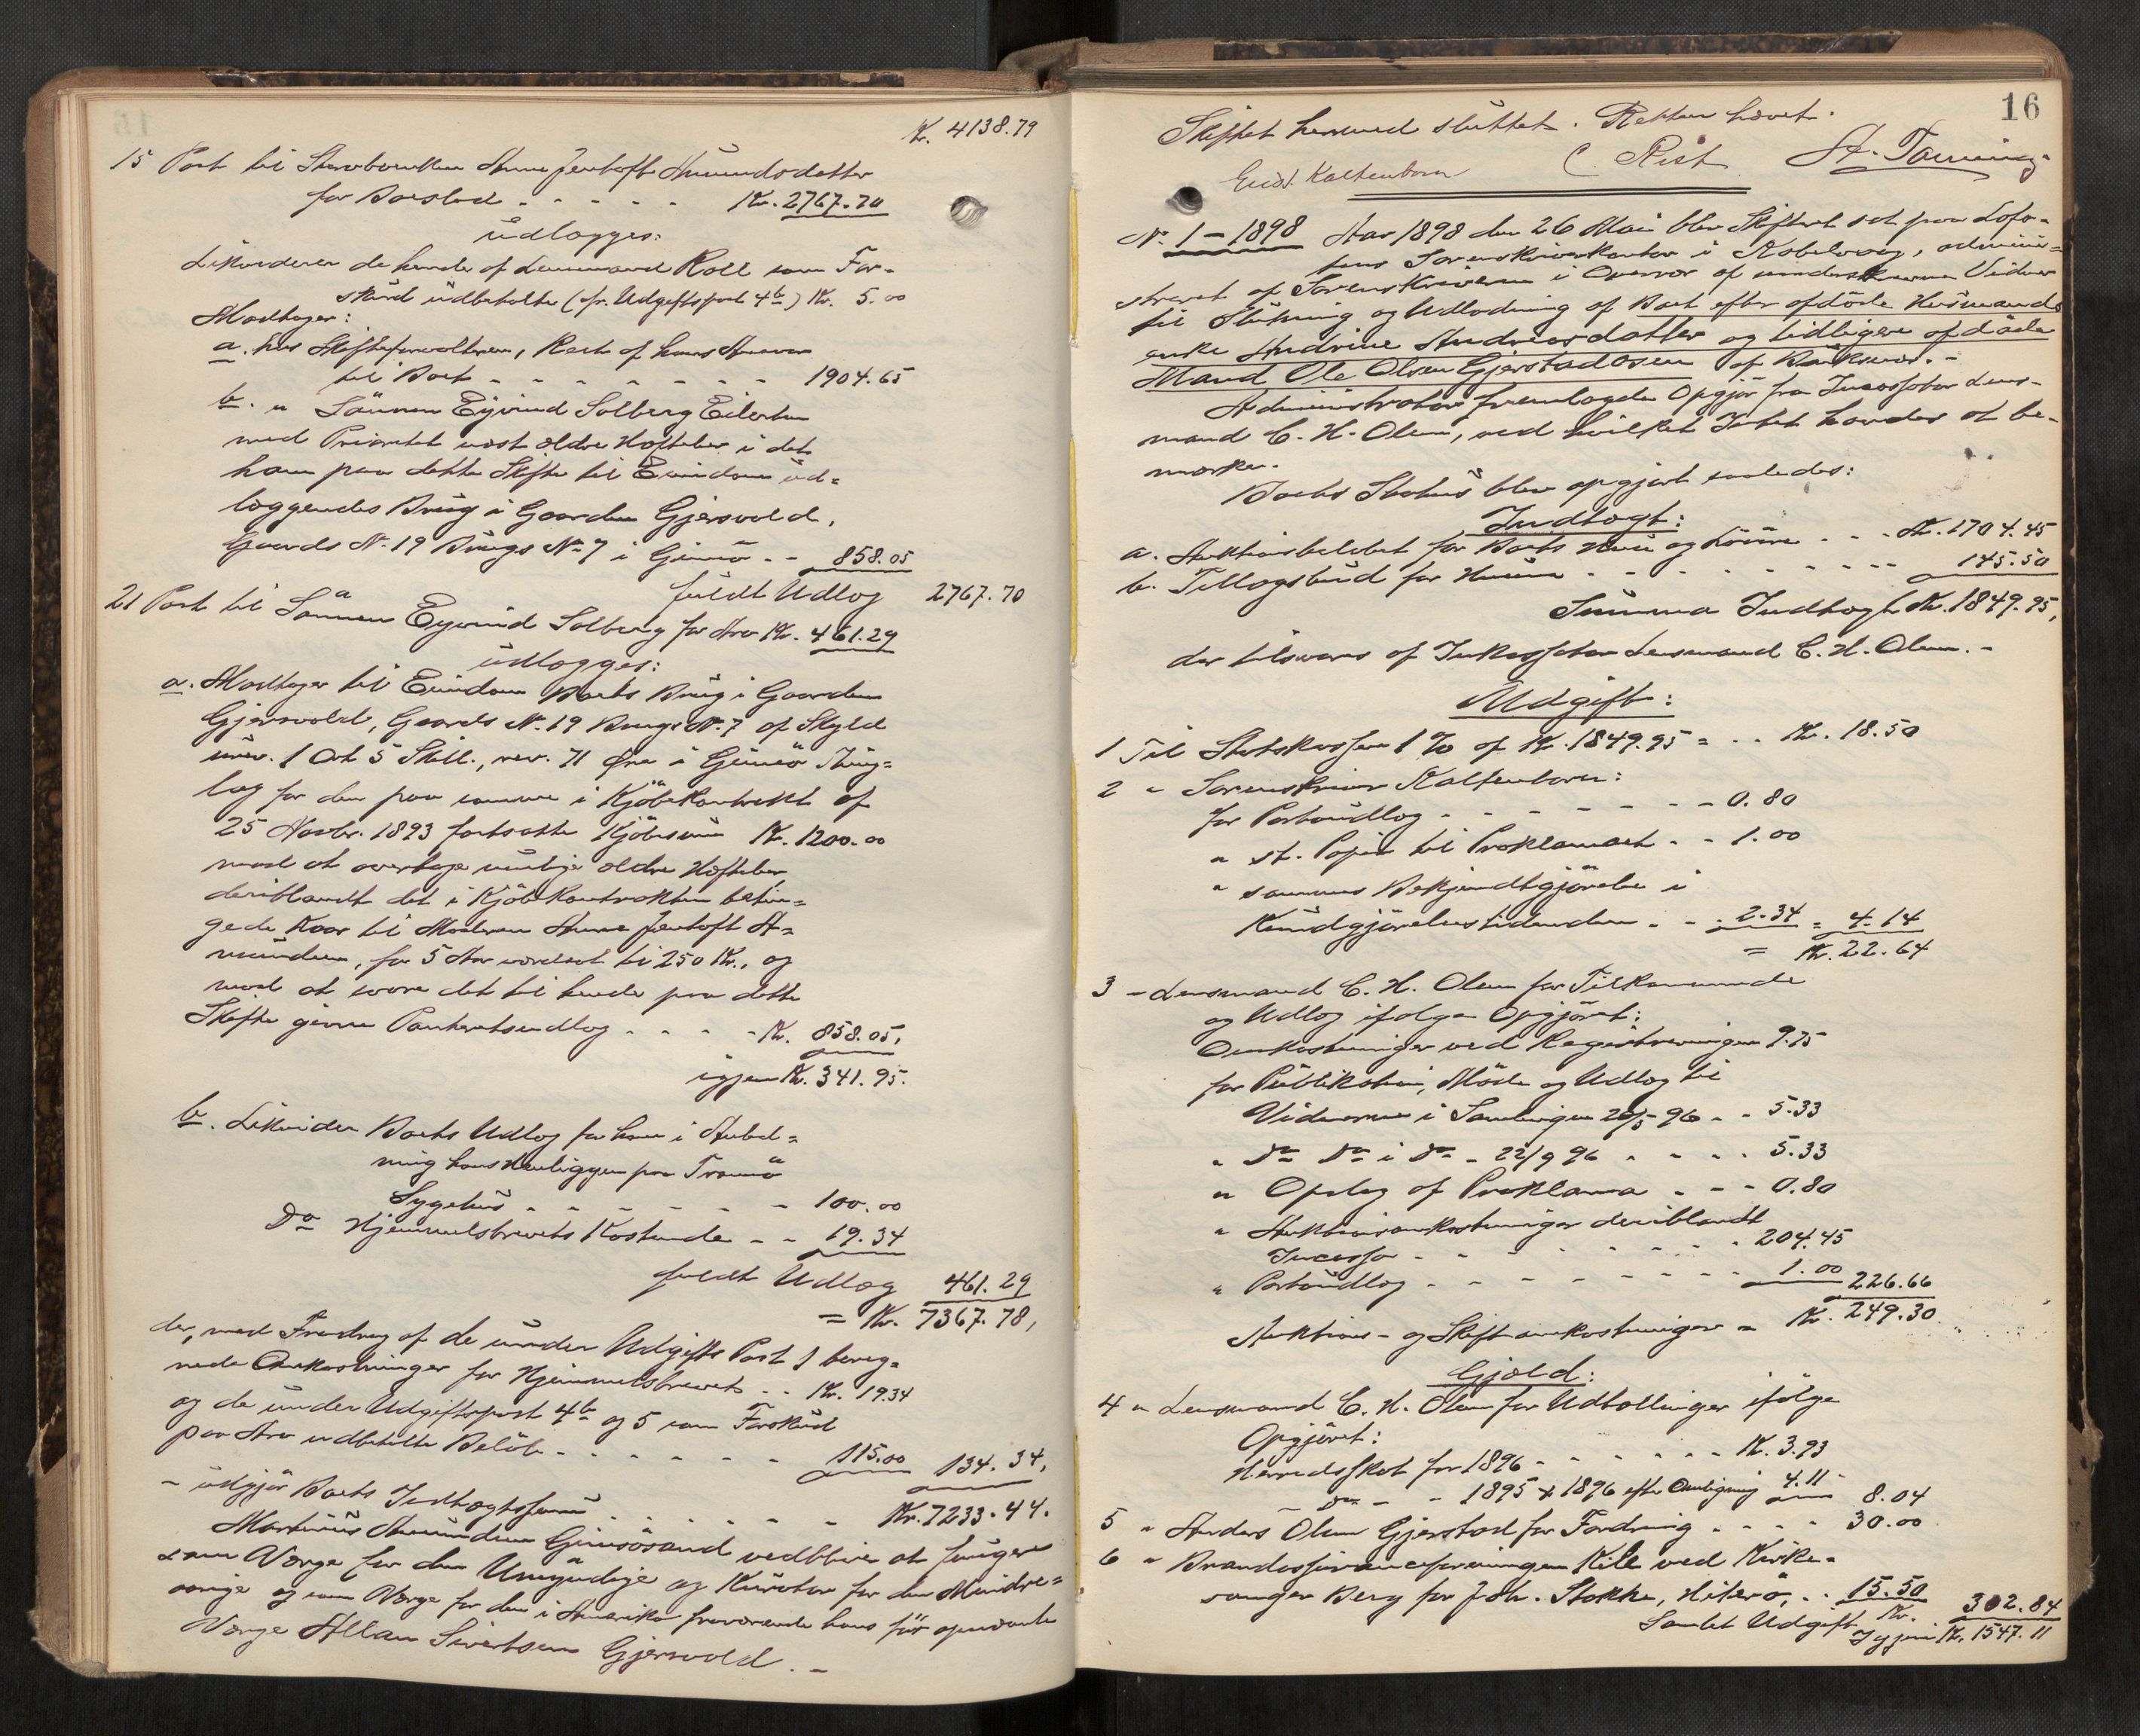 Kr. 4138.79
15 Post til Stervboenken Anne Jentoft Amundsdatter
for Boeslod - - - - - Kr. 2767.70
udlægges:
Likviderer de hende af Lensmand Roll som For-
skud udbetalte (cfr. Udgiftspost 4b) Kr. 5.00
Modtager:
a. hos Skifteforvalteren, Rest af hans Ansvar
til Boet - - - - - - - - 1904.65
b. " Sönnen Eyvind Solberg Eilertsen
med Prioritet næst ældre Heftelser i det
ham paa dette Skifte til Eiendom ud-
læggendes Brug i Gaarden Gjersvold,
Gaards No. 19 Brugs No. 7 i Gimsö - - 858.05
fuldt Udlæg 2767.70
21 Post til Sönnen Eyvind Solberg for Arv Kr. 461.29
udlægges:
a. Modtager til Eiendom Boets Brug i Gaarden
Gjersvold, Gaards No. 19 Brugs No. 7 af Skyld
urev. 1 Ort 5 Skill., rev. 71 Øre i Gimsö Thing-
lag for den paa samme i Kjöbekontrakt af
25 Novbr. 1893 fastsatte Kjöbesum Kr. 1200.00
mod at overtage mulige ældre Heftelser
deriblandt det i Kjöbekontrakten betin-
gede Kaar til Moderen Anne Jentoft A-
mundsen, for 5 Aar værdsat til 250 Kr., og
mod at svare det til hende paa dette
Skifte givne Panteretsudlæg - - - - Kr. 858.05,
igjen Kr. 341.95.
b. Likvider Boets Udlæg for ham i Anled-
ning hans Henliggen paa Tromsö
Sygehus - - - - - - - 100.00
Do Hjemmelsbrevets Kostende - - 19.34
fuldt Udlæg 461.29
= Kr. 7367.78,
der, med Fradrag af de under Udgifts Post 1 bereg-
nede Omkostninger for Hjemmelsbrevet - - Kr. 19.34
og de under Udgiftspost 4b og 5 som Forskud
paa Arv udbetalte Beløb - - - - - - 115.00 134.34,
- udgjør Boets Indtægtssum - - - - - - Kr. 7233.44.
Martinus Amundsen Gimsösand vedbliver at fungere
som Værge for den Umyndige og Kurator for den Mindre-
aarige og som Værge for den i Amerika fraværende hans før opnævnte
Værge Allan Sivertsen Gjersvold. -
16
Skiftet hermed sluttet. Retten hævet.
Eivd. Kaltenborn C. Rist A. Tanning.
No. 1 - 1898 Aar 1898 den 26 Mai blev Skifteret sat paa Lofo-
tens Sorenskriverkontor i Kabelvaag, admini-
streret af Sorenskriveren i Overvær af underskrevne Vidner
til Slutning og Udlodning af Boet efter afdöde Husmands
enke Andrine Andreasdatter og tidligere afdöde
Mand Ole Olsen Gjerstadosen af Buksnes. -
Administrator fremlagde Opgjör fra Incassator Lens-
mand C. H. Olsen, ved hvilket Intet havdes at be-
mærke.
Boets Status blev opgjort saaledes:
Indtægt:
a. Auktionsbeløbet for Boets Huse og Løsøre - - - Kr. 1704.45
b. Tillægsbud for Husene - - - - - - - - - 145.50
Summa Indtægt Kr. 1849.95,
der tilsvares af Inkassator Lensmand C. H. Olsen. -
Udgift:
1 Til Statskassen 1 % af Kr. 1849.95 = - - Kr. 18.50
2 " Sorenskriver Kaltenborn:
for Portoudlæg - - - - - - - 0.80
" st. Papir til Proklamaet - - 1.00
" sammes Bekjendtgjörelse i
Kundgjörelsestidenden - - 2.34 = 4.14
= Kr. 22.64
3 - Lensmand C. H. Olsen for Tilkommende
og Udlæg ifølge Opgjöret:
Omkostninger ved Registreringen 9.75
for Publikation, Möde og Udlæg til
Vidnerne i Samlingen 20/5 96 - - 5.33
" Do Do i Do - 22/9 96 - - - - 5.33
" Opslag af Proklama - - - 0.80
" Auktionsomkostninger deriblandt
Incasso - - - - - - - - 204.45
" Portoudlæg - - - - - - - - 1.00 226.66
Auktions- og Skifteomkostninger = Kr. 249.30
Gjæld:
4 " Lensmand C. H. Olsen for Udbetalinger ifølge
Opgjöret:
Herredsskat for 1896 - - - - - - Kr. 3.93
Do - - 1895 & 1896 efter Omligning 4.11 8.04
5 " Anders Olsen Gjerstad for Fordring - - - - 30.00
6 " Brandassuranceforeningen Kile ved Kirke-
sanger Berg for Joh. Stokke, Hiterö, - - 15.50
Samlet Udgift Kr. 302.84
Igjen Kr. 1547.11